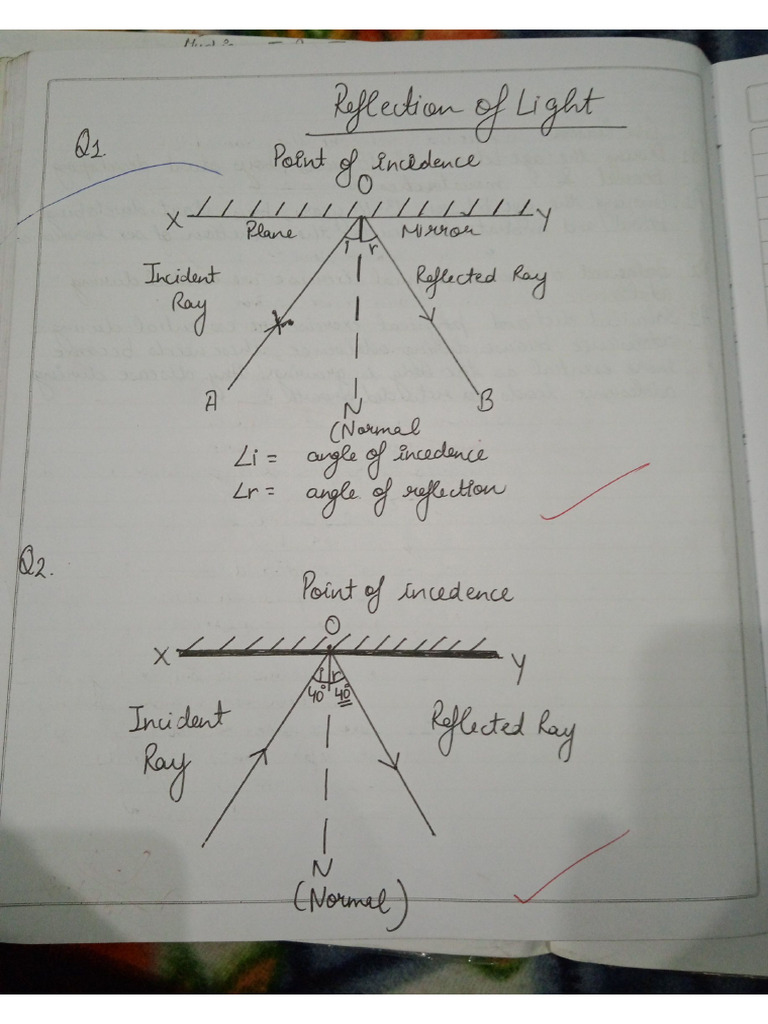 Reflection of Light
Q1.
Point of incidence
O
X Y
Plane Mirror
i r
Incident
Ray
Reflected Ray
A B
N
(Normal
∠i = angle of incedence
∠r = angle of reflection
Q2.
Point of incedence
O
X Y
i r
40° 40°
Incident
Ray
Reflected Ray
N
(Normal)